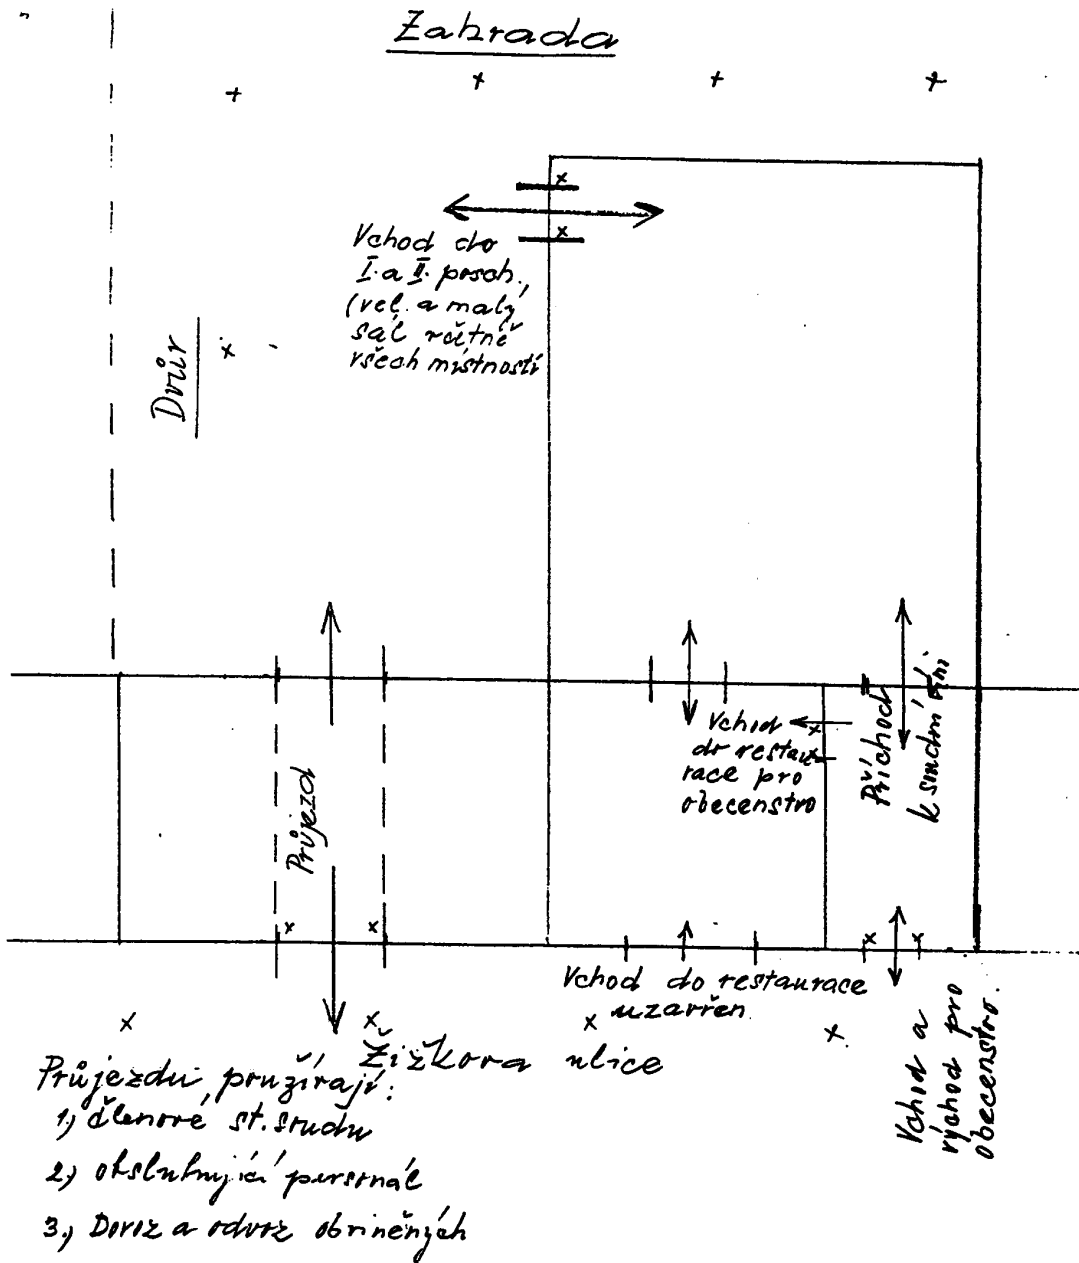 Zahrada
Vchod do
I. a II. posch.,
(vel. a malý
sál včetně
všech místností
Dvůr
Průjezd
Vchod
do restau
race pro
obecenstvo
Příchod
k soudní síni
Vchod do restaurace
uzavřen
Žižkova ulice
Vchod a
východ pro
obecenstvo.
Průjezdu používají:
1, členové st. soudu
2, obsluhující personál
3., Dovoz a odvoz obviněných